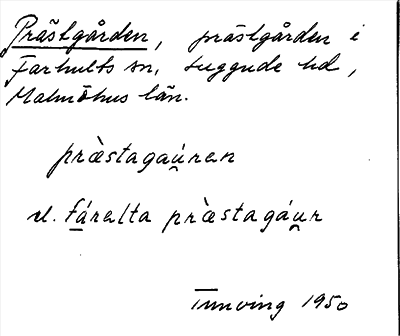 Prästgården, prästgården i
Farhults sn, Luggude hd,
Malmöhus län.
præ̀stagau̯ren
el. fárelta præ̀stagáu̯r
Tunving 1950